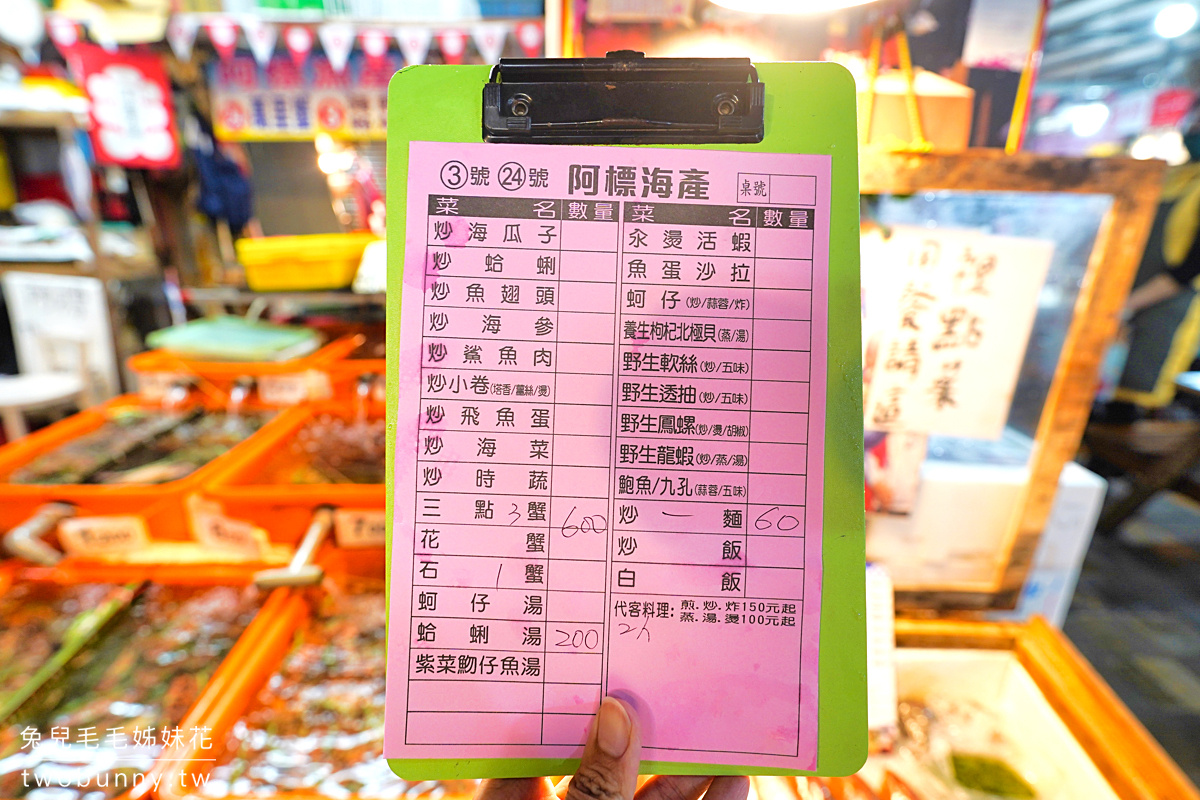 ③號 ㉔號 阿標海產 桌號
菜名 數量
炒海瓜子
炒蛤蜊
炒魚翅頭
炒海參
炒鯊魚肉
炒小卷(塔香/薑絲/燙)
炒飛魚蛋
炒海菜
炒時蔬
三點 3 蟹 600
花蟹
石 1 蟹
蚵仔湯
蛤蜊湯 200
紫菜魩仔魚湯
菜名 數量
汆燙活蝦
魚蛋沙拉
蚵仔(炒/蒜蓉/炸)
養生枸杞北極貝(蒸/湯)
野生軟絲(炒/五味)
野生透抽(炒/五味)
野生鳳螺(炒/燙/胡椒)
野生龍蝦(炒/蒸/湯)
鮑魚/九孔(蒜蓉/五味)
炒 一 麵 60
炒飯
白飯
代客料理:煎.炒.炸150元起
蒸.湯.燙100元起
2人
兔兒毛毛姊妹花
twobunny.tw